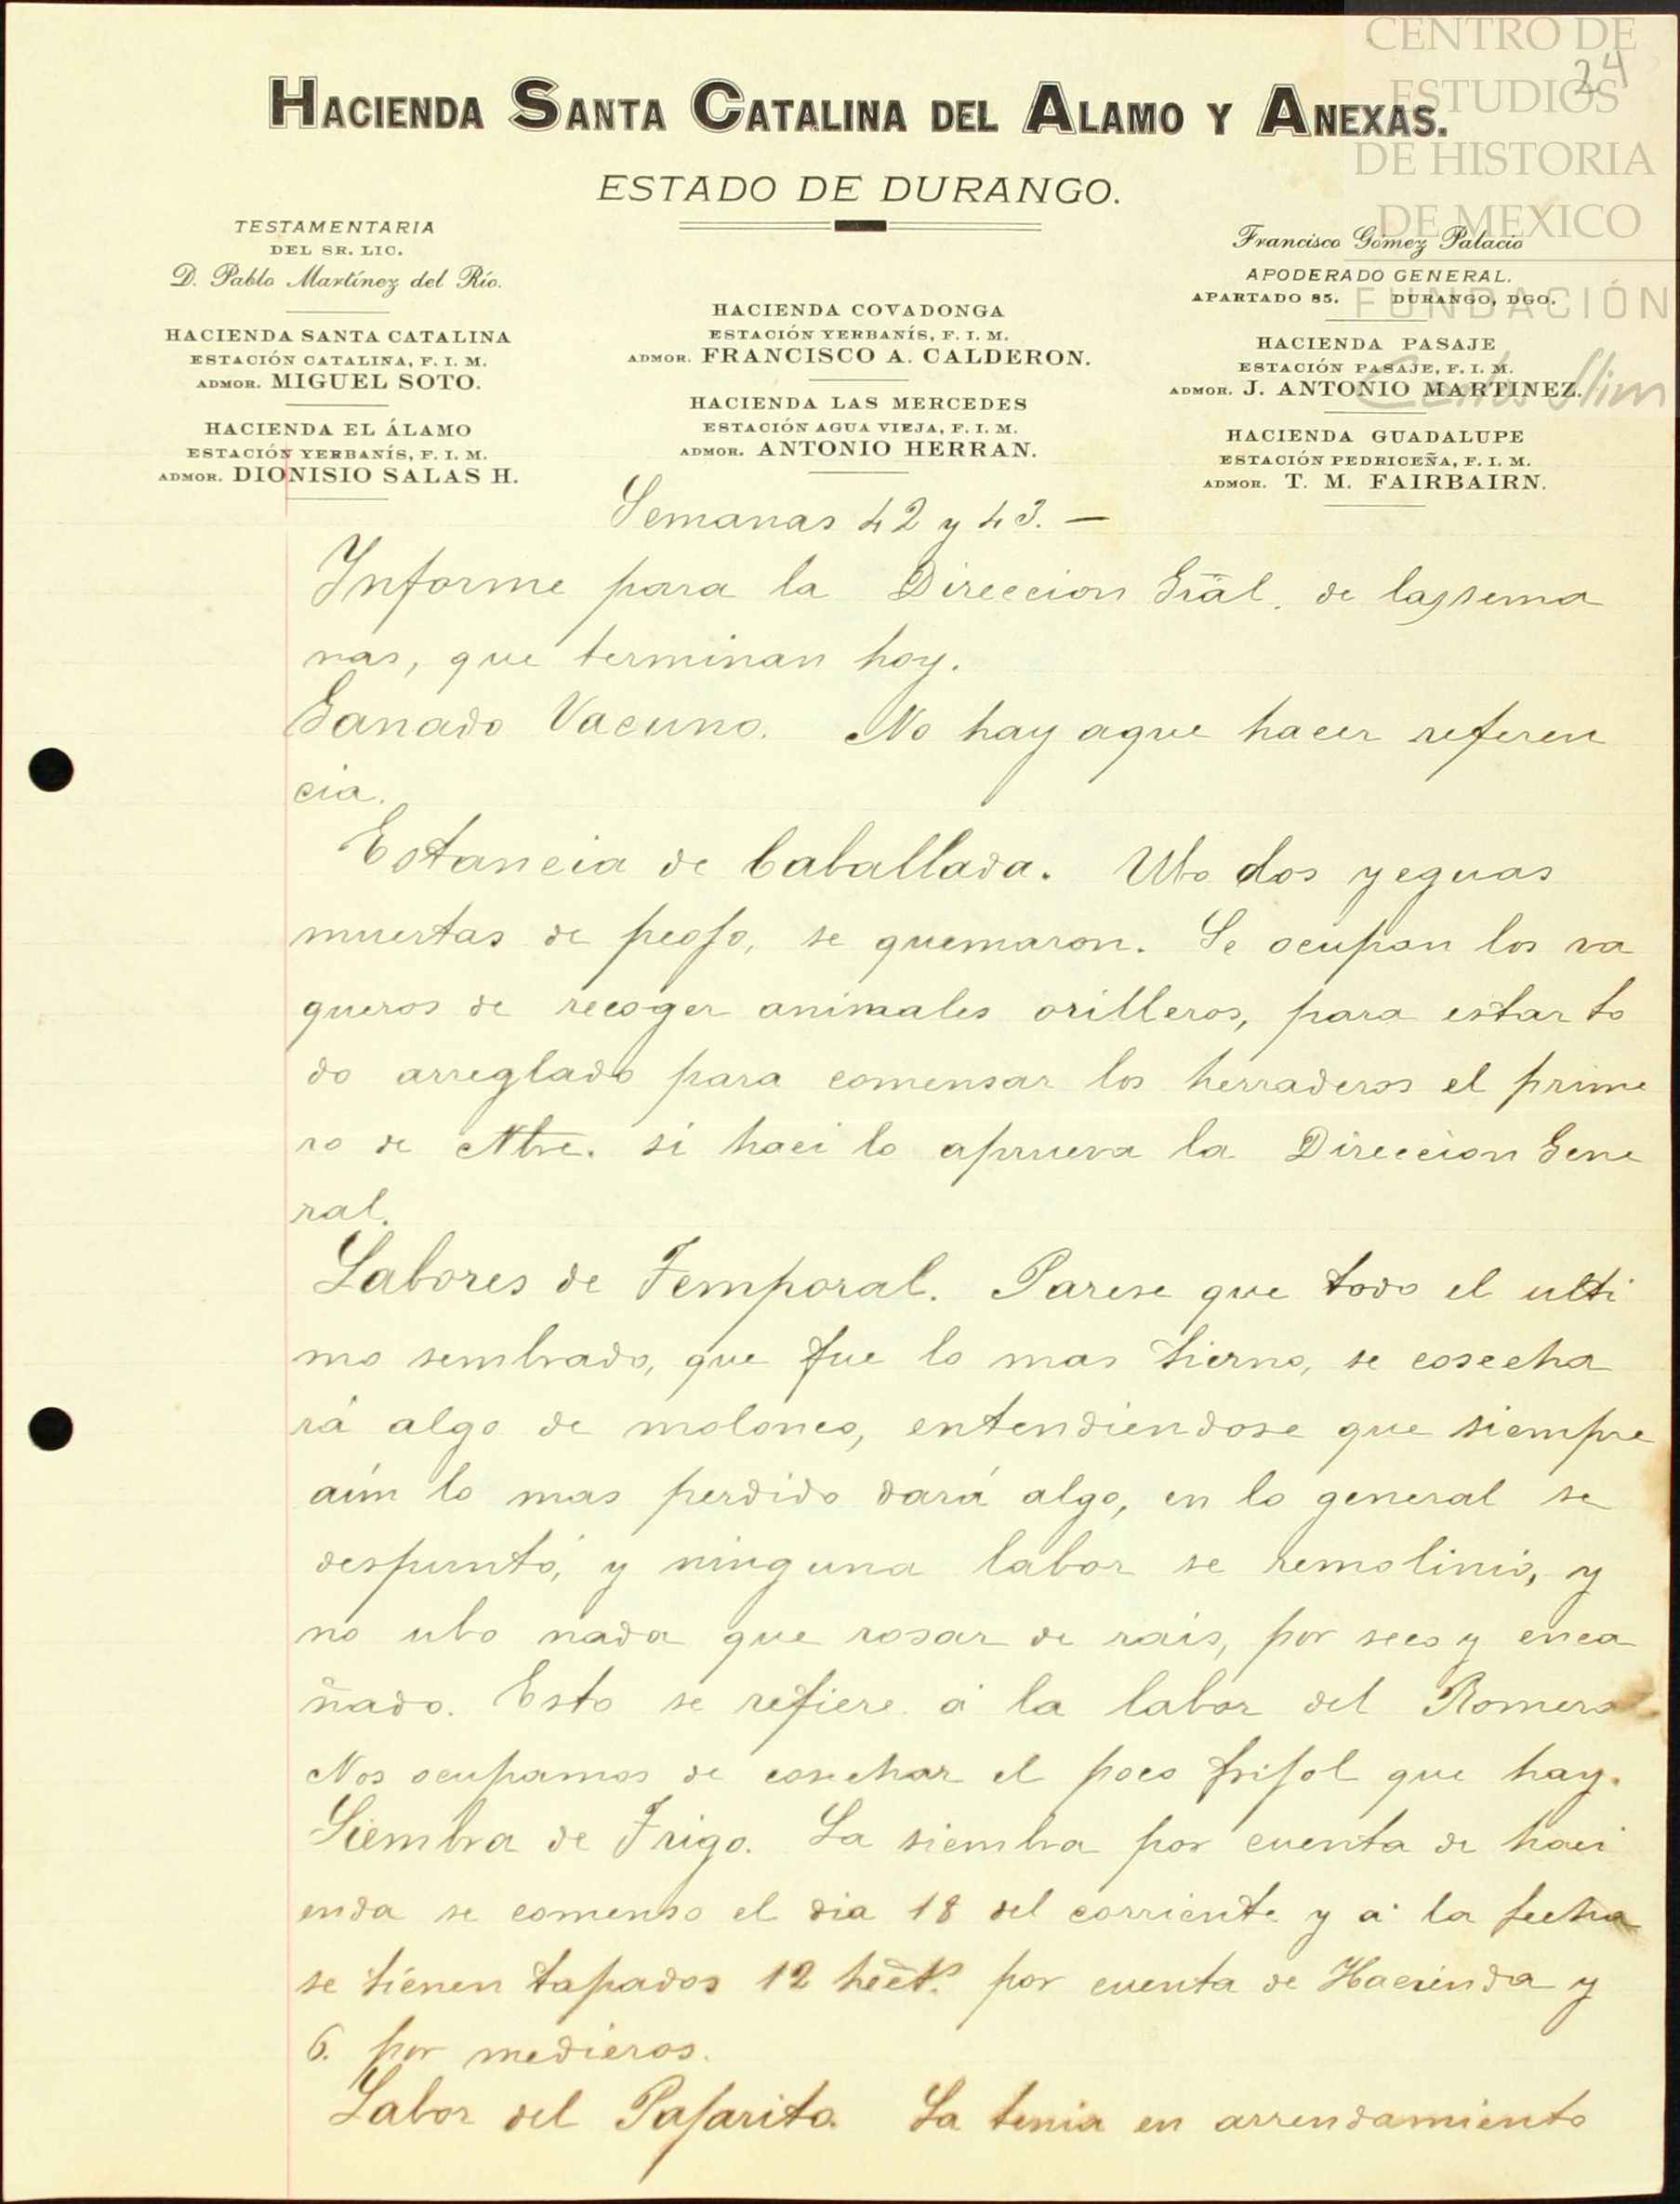 CENTRO DE
ESTUDIOS
DE HISTORIA
DE MEXICO
FUNDACIÓN
Carlos Slim
24
HACIENDA SANTA CATALINA DEL ALAMO Y ANEXAS.
ESTADO DE DURANGO.
TESTAMENTARIA
DEL SR. LIC.
D. Pablo Martínez del Río.
HACIENDA SANTA CATALINA
ESTACIÓN CATALINA, F. I. M.
ADMOR. MIGUEL SOTO.
HACIENDA EL ÁLAMO
ESTACIÓN YERBANÍS, F. I. M.
ADMOR. DIONISIO SALAS H.
HACIENDA COVADONGA
ESTACIÓN YERBANÍS, F. I. M.
ADMOR. FRANCISCO A. CALDERON.
HACIENDA LAS MERCEDES
ESTACIÓN AGUA VIEJA, F. I. M.
ADMOR. ANTONIO HERRAN.
Francisco Gómez Palacio
APODERADO GENERAL.
APARTADO 85. DURANGO, DGO.
HACIENDA PASAJE
ESTACIÓN PASAJE, F. I. M.
ADMOR. J. ANTONIO MARTINEZ.
HACIENDA GUADALUPE
ESTACIÓN PEDRICEÑA, F. I. M.
ADMOR. T. M. FAIRBAIRN.
Semanas 42 y 43. —
Informe para la Direccion Gral. de las sema
nas, que terminan hoy.
Ganado Vacuno. No hay aque hacer referen
cia.
Estancia de Caballada. Ubo dos yeguas
muertas de piojo, se quemaron. Se ocupan los va
queros de recoger animales orilleros, para estar to
do arreglado para comensar los herraderos el prime
ro de Nbre. si haci lo aprueva la Direccion Gene
ral.
Labores de Temporal. Parese que todo el ulti
mo sembrado, que fue lo mas tierno, se cosecha
rá algo de molonco, entendiendose que siempre
aún lo mas perdido dará algo, en lo general se
despuntó, y ninguna labor se remolinió, y
no ubo nada que rosar de raís, por seco y enca
ñado. Esto se refiere á la labor del Romeral
Nos ocupamos de cosechar el poco frijol que hay.
Siembra de Trigo. La siembra por cuenta de haci
enda se comenso el dia 18 del corriente y á la fecha
se tienen tapados 12 hects. por cuenta de Hacienda y
6. por medieros.
Labor del Pajarito. La tenia en arrendamiento